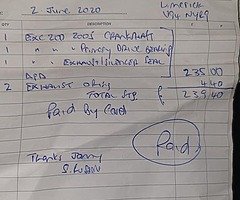 2 June 2020
Limerick
V94 NY69
DESCRIPTION
1 EXC 200 2005 CRANKSHAFT
1 " " " PRIMARY DRIVE BEARING
1 " " EXHAUST/SILENCER SEAL
235.00
2 EXHAUST O RINGS 4.40
TOTAL STG £ 239.40
Paid By Card
Paid
Thanks Jonny